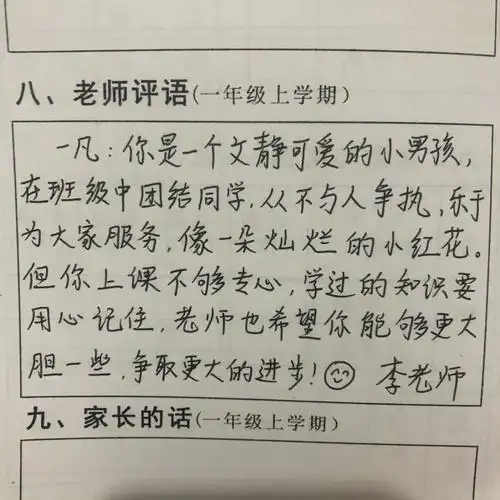 八、老师评语(一年级上学期)
一凡:你是一个文静可爱的小男孩,
在班级中团结同学,从不与人争执,乐于
为大家服务,像一朵灿烂的小红花。
但你上课不够专心,学过的知识要
用心记住,老师也希望你能够更大
胆一些,争取更大的进步!😊 李老师
九、家长的话(一年级上学期)